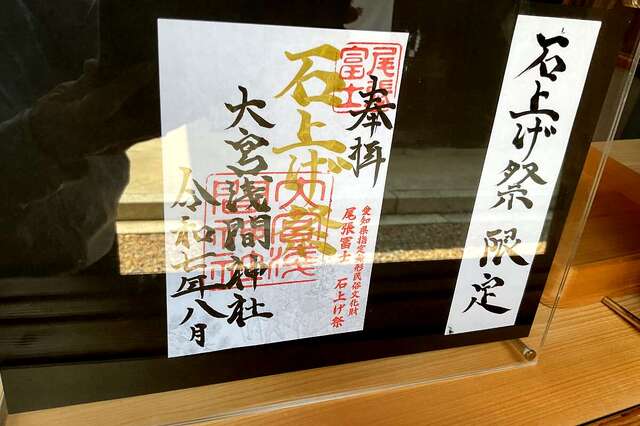 石上げ祭限定
尾張
富士
奉拝
石上げ祭
大宮浅間神社
令和七年八月
愛知県指定無形民俗文化財
尾張冨士　石上げ祭